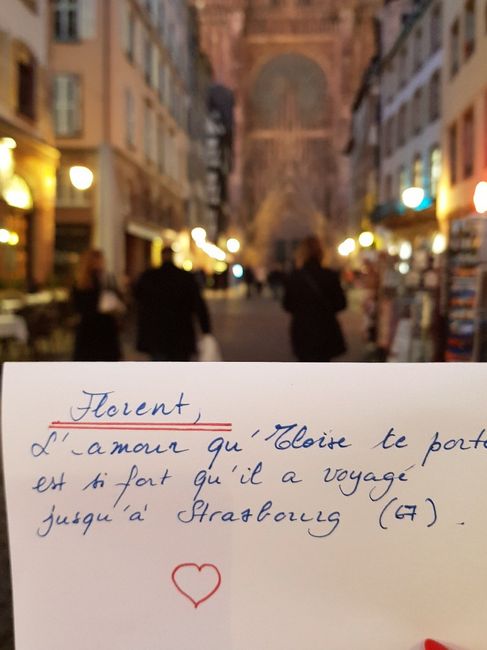 Florent,
L'amour qu'Eloise te porte
est si fort qu'il a voyagé
jusqu'à Strasbourg (67).